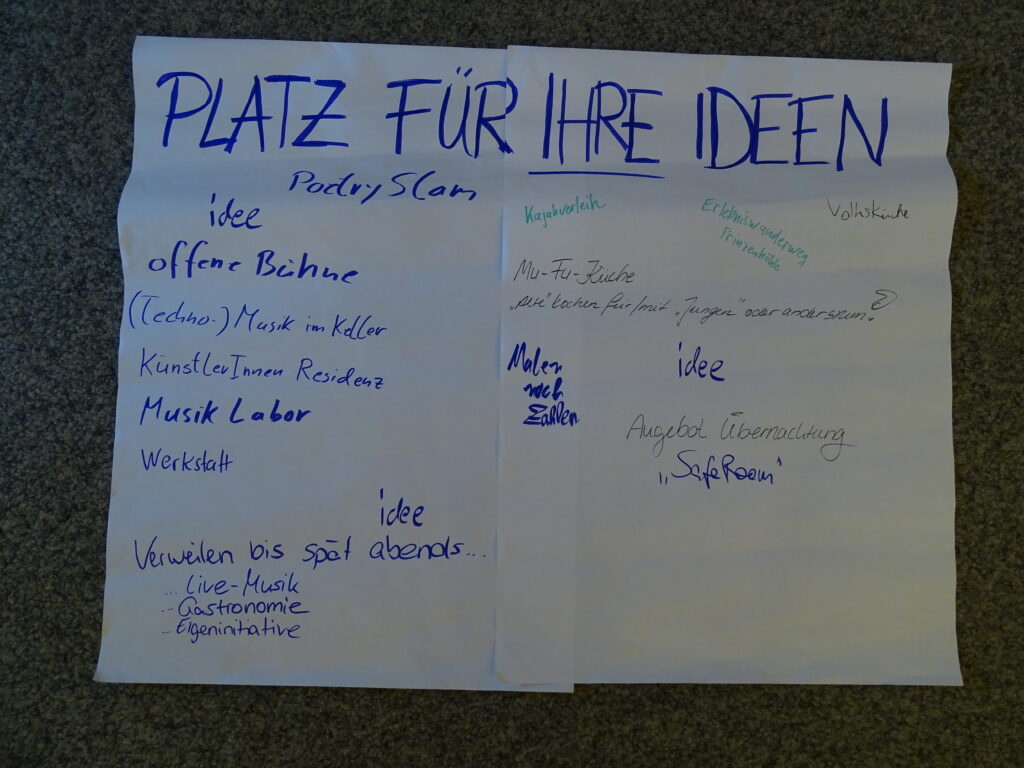 PLATZ FÜR IHRE IDEEN
Poetry Slam
idee
offene Bühne
(Techno-) Musik im Keller
KünstlerInnen Residenz
Musik Labor
Werkstatt
idee
Verweilen bis spät abends...
... Live-Musik
... Gastronomie
... Eigeninitiative
Kajakverleih
Erlebniswanderweg
Prinzenhöhle
Volksküche
Mu-Fu-Küche
"Alte" kochen für/mit "Jungen" oder andersrum
Malen
nach
Zahlen
idee
Angebot Übernachtung
"SafeRoom"